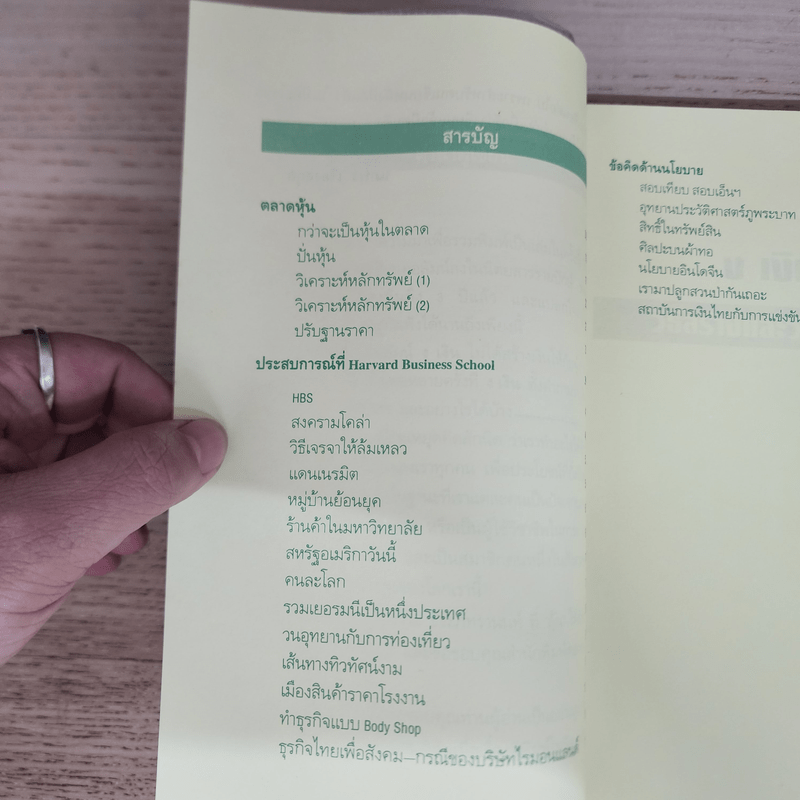 สารบัญ
ตลาดหุ้น
กว่าจะเป็นหุ้นในตลาด
ปั่นหุ้น
วิเคราะห์หลักทรัพย์ (1)
วิเคราะห์หลักทรัพย์ (2)
ปรับฐานราคา
ประสบการณ์ที่ Harvard Business School
HBS
สงครามโคล่า
วิธีเจรจาให้ล้มเหลว
แดนเนรมิต
หมู่บ้านย้อนยุค
ร้านค้าในมหาวิทยาลัย
สหรัฐอเมริกาวันนี้
คนละโลก
รวมเยอรมนีเป็นหนึ่งประเทศ
วนอุทยานกับการท่องเที่ยว
เส้นทางทิวทัศน์งาม
เมืองสินค้าราคาโรงงาน
ทำธุรกิจแบบ Body Shop
ธุรกิจไทยเพื่อสังคม—กรณีของบริษัทไรมอนแลนด์
ข้อคิดด้านนโยบาย
สอบเทียบ สอบเอ็นฯ
อุทยานประวัติศาสตร์ภูพระบาท
สิทธิ์ในทรัพย์สิน
ศิลปะบนผ้าทอ
นโยบายอินโดจีน
เรามาปลูกสวนป่ากันเถอะ
สถาบันการเงินไทยกับการแข่งขัน